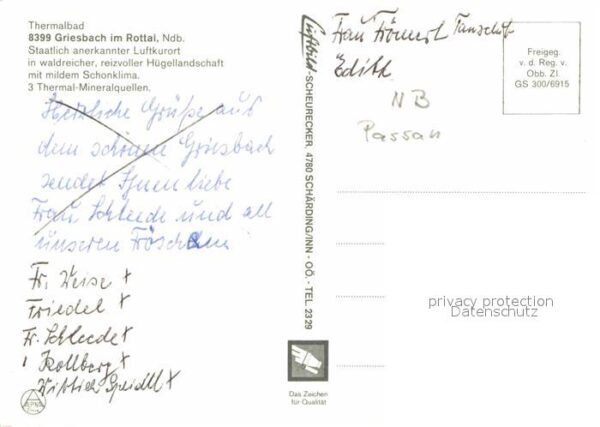 Thermalbad
8399 Griesbach im Rottal, Ndb.
Staatlich anerkannter Luftkurort
in waldreicher, reizvoller Hügellandschaft
mit mildem Schonklima.
3 Thermal-Mineralquellen.
Herzliche Grüße aus
dem schönen Griesbach
sendet Ihnen liebe
Frau Schleede und all
unseren Fröschen
Fr. Weise +
Friedel +
Fr. Schleede +
Kollberg +
+
Luftbild-SCHEURECKER, 4780 SCHÄRDING/INN - OÖ. - TEL. 23 29
Frau
Edith
NB
Passau
Freigeg.
v. d. Reg. v.
Obb. Zl.
GS 300/6915
privacy protection
Datenschutz
Das Zeichen
für Qualität